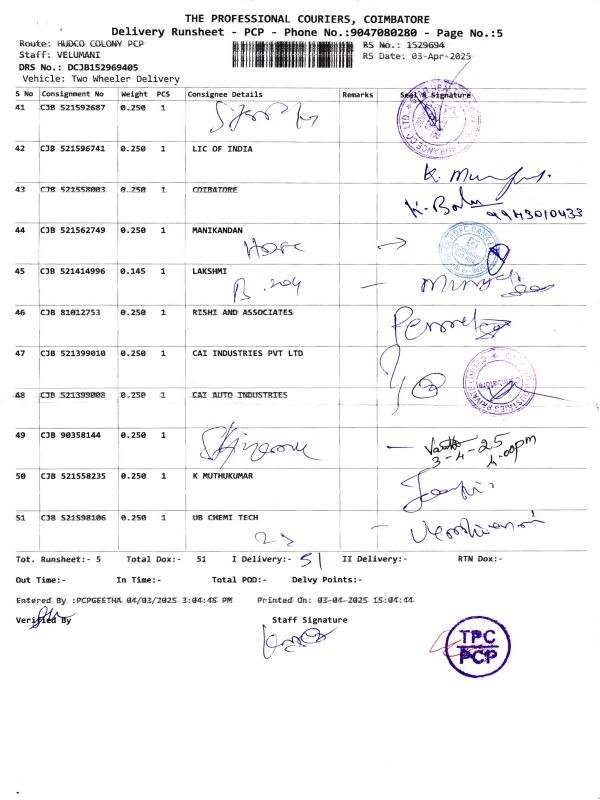 THE PROFESSIONAL COURIERS, COIMBATORE
Delivery Runsheet - PCP - Phone No.:9047080280 - Page No.:5
Route: HUDCO COLONY PCP
RS No.: 1529694
Staff: VELUMANI
RS Date: 03-Apr-2025
DRS No.: DCJB152969405
Vehicle: Two Wheeler Delivery
S No Consignment No Weight PCS Consignee Details Remarks Seal & Signature
41 CJB 521592687 0.250 1
42 CJB 521596741 0.250 1 LIC OF INDIA
43 CJB 521558003 0.250 1 COIBATORE
K. Balu 9943010433
44 CJB 521562749 0.250 1 MANIKANDAN
45 CJB 521414996 0.145 1 LAKSHMI
46 CJB 81012753 0.250 1 RISHI AND ASSOCIATES
47 CJB 521399010 0.250 1 CAI INDUSTRIES PVT LTD
48 CJB 521399008 0.250 1 CAI AUTO INDUSTRIES
49 CJB 90358144 0.250 1
3-4-25
4.00pm
50 CJB 521558235 0.250 1 K MUTHUKUMAR
51 CJB 521598106 0.250 1 UB CHEMI TECH
Tot. Runsheet:- 5 Total Dox:- 51 I Delivery:- 51 II Delivery:- RTN Dox:-
Out Time:- In Time:- Total POD:- Delvy Points:-
Entered By :PCPGEETHA 04/03/2025 3:04:45 PM Printed On: 03-04-2025 15:04:44
Verified By Staff Signature
TPC
PCP